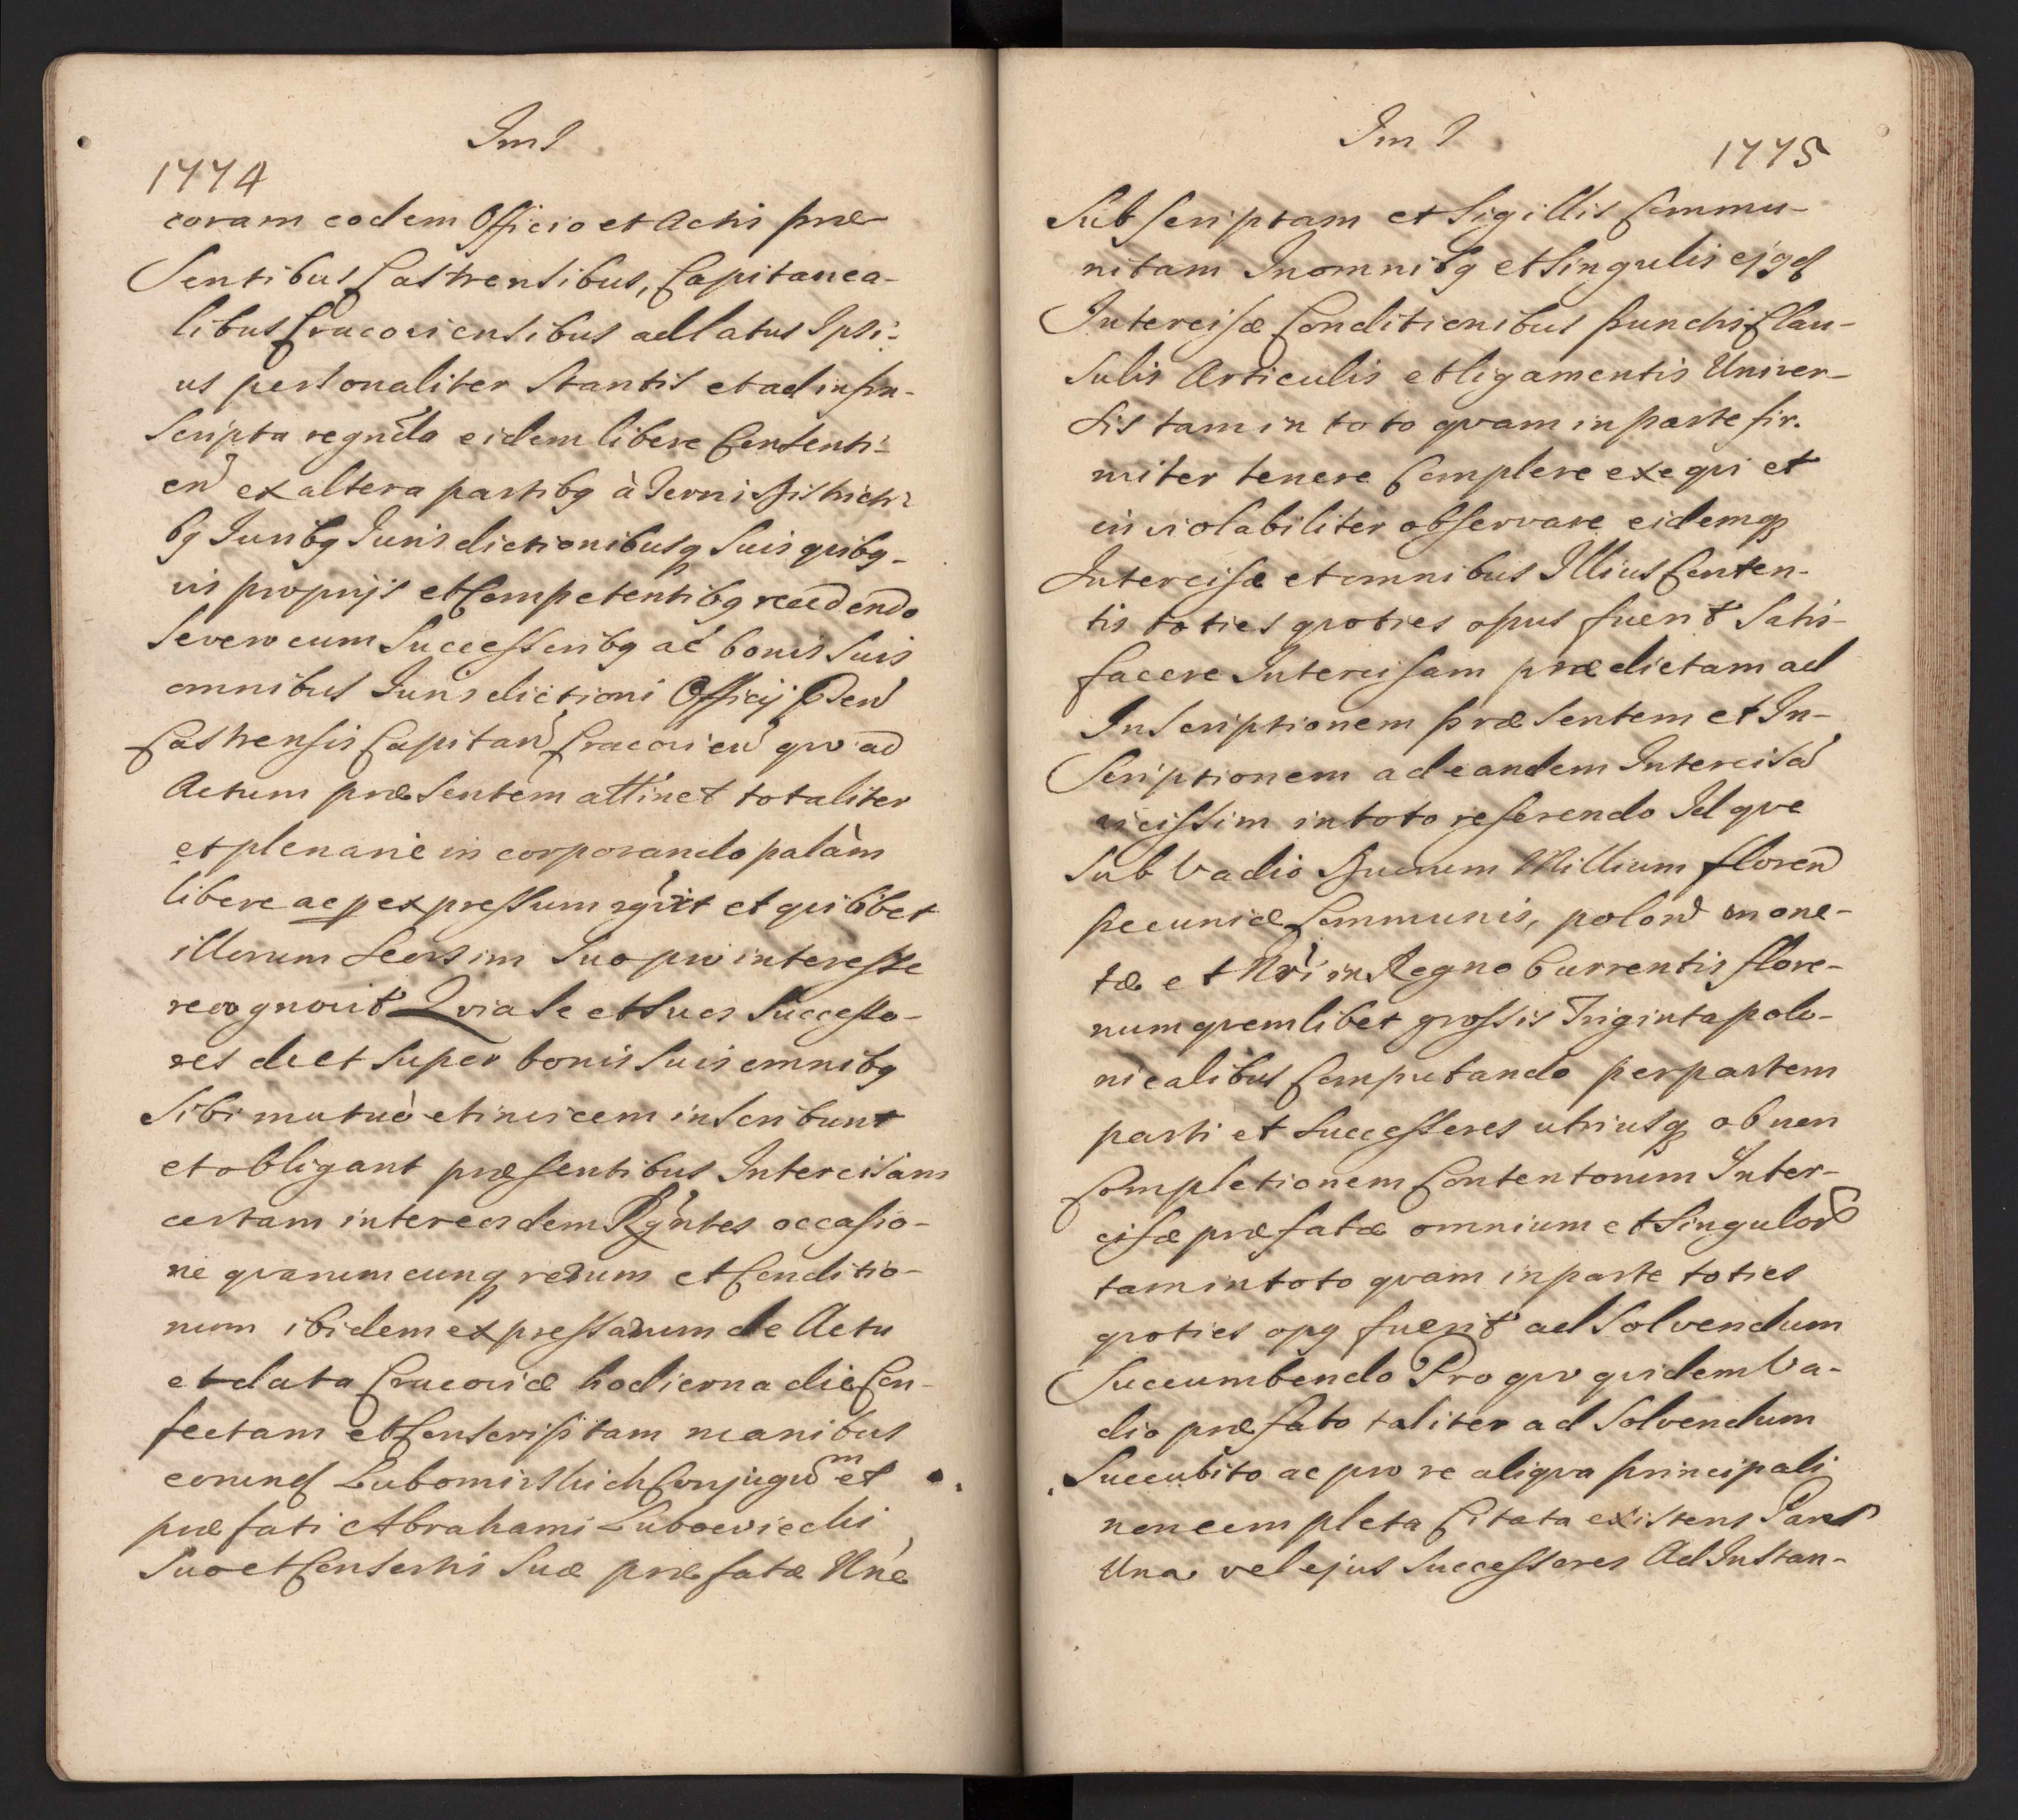 Im I
1774
coram eodem Officio et Actis præ
Sentibus Castrensibus, Capitanea-
libus Cracoviensibus ad latus Ipsi-
us personaliter Stantis et ad infra-
Scripta regndã eidem libere Consenti-
eñ ex altera partibq à
bq Juribq Jurisdictionibusq Suis qvibq-
vis proprijs et Competentibq recedendo
Se vero cum Successoribq ac bonis Suis
omnibus Jurisdictioni Officij
Castrensis Capitañ Cracovieñ qvo ad
Actum præsentem attinet totaliter
et plenarie in corporando palàm
libere ac p expressum et qvilibet
illorum Seorsim Suo pro interesse
recognovit Qvia Se et Suos Successo-
res de et Super bonis Suis omnibq
Sibi mutuò et invicem inscribunt
et obligant præsentibus Intercisam
certam inter eosdem Rgñtes occasio-
ne qvarumcunq rerum et Conditio-
num ibidem expressarum de Actu
et data Cracoviæ hodierna die Con-
fectam et Conscriptam manibus
eorund Lubomirskich Conjugũm et
præfati Abrahami Luboviecki
Suo et Consortis Suæ præfatæ
Im I
1775
Subscriptam et Sigillis Commu-
nitam In omnibq et Singulis ejqd
Intercisæ Conditionibus punctis Clau-
Sulis Articulis et ligamentis Univer-
Sis tam in toto qvam in parte fir-
miter tenere Complere exeqvi et
inviolabiliter observare eidemq
Intercisæ et omnibus Illius Conten-
tis toties qvoties opus fuerit Satis-
facere Intercisam prædictam ad
Inscriptionem præsentem et In-
Scriptionem ad eandem Intercisã
vicissim in toto referendo Idqve
Sub Vadio Millium floreñ
pecuniæ Communis, poloñ mone-
tæ et Nri in Regno Currentis flore-
num qvemlibet grossis Triginta polo-
nicalibus Computando per partem
parti et Successores utriusq ob non
Completionem Contentorum Inter-
cisæ præfatæ omnium et Singulor
tam in toto qvam in parte toties
qvoties opq fuerit ad Solvendum
Succumbendo Pro qvo qvidem Va-
dio præfato taliter ad Solvendum
Succubito ac pro re aliqva principali
non completa Citata existens Pars
Una vel ejus Successores Ad Instan-